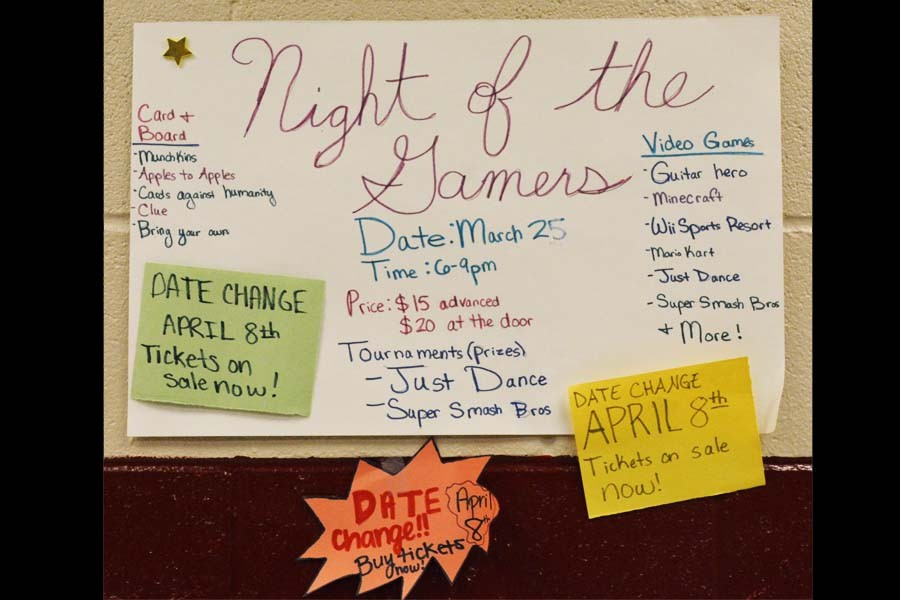 Night of the
Gamers
Card +
Board
-Munchkins
-Apples to Apples
-Cards against humanity
-Clue
-Bring your own
Date: March 25
Time: 6-9pm
Price: $15 advanced
$20 at the door
Tournaments (prizes)
- Just Dance
- Super Smash Bros
Video Games
-Guitar hero
-Minecraft
-Wii Sports Resort
-Mario Kart
-Just Dance
-Super Smash Bros
+ More!
DATE CHANGE
APRIL 8th
Tickets on
sale now!
DATE CHANGE
APRIL 8th
Tickets on sale
now!
DATE
change!!
April
8th
Buy tickets
now!